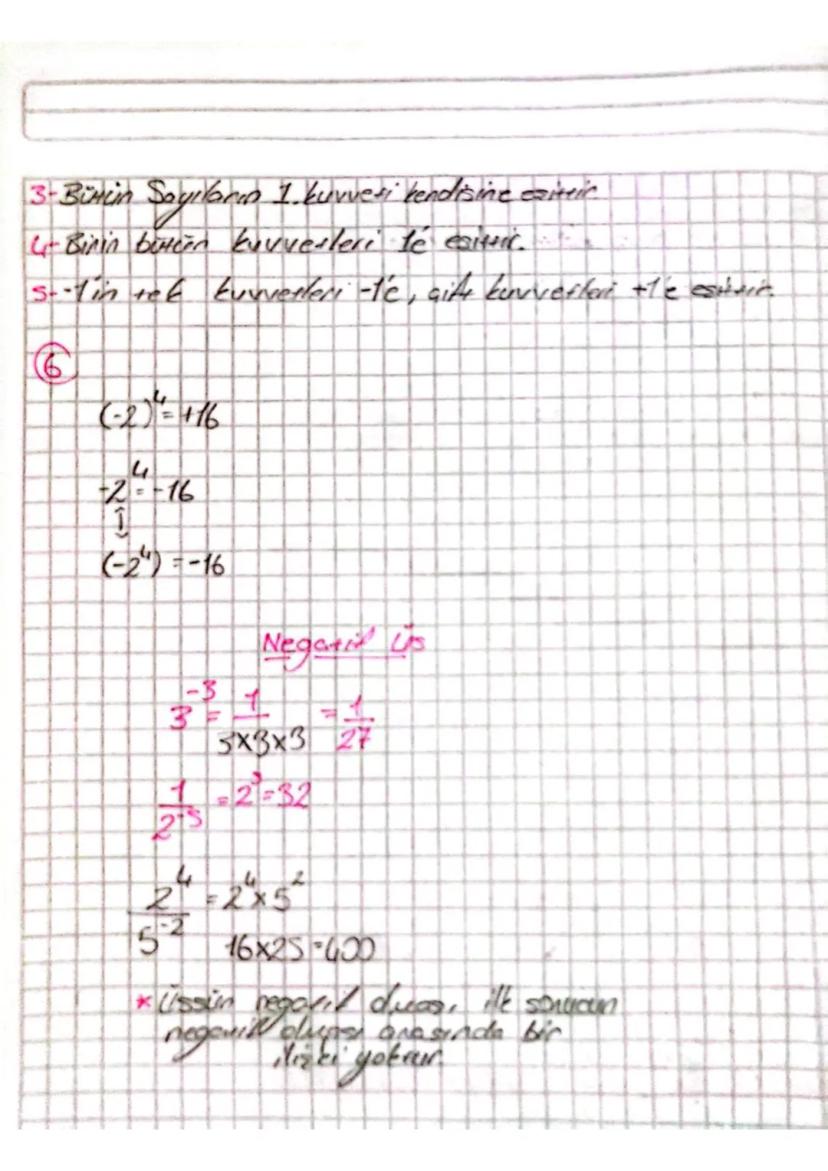 3- Bütün Sayıların 1. kuvveti kendisine eşittir.
4- Birin bütün kuvvetleri 1'e eşittir.
5- -1'in tek kuvvetleri -1'e, çift kuvvetleri +1'e eşittir.
6
(-2)⁴ = +16
-2⁴ = -16
(-2⁴) = -16
Negatif Üs
3⁻³ = 1/(3x3x3) = 1/27
1/2⁻⁵ = 2⁵ = 32
2⁴/5⁻² = 2⁴ x 5²
16x25 = 400
* Üssün negatif oluşu, ile sonucun
negatif oluşu arasında bir
ilişki yoktur.